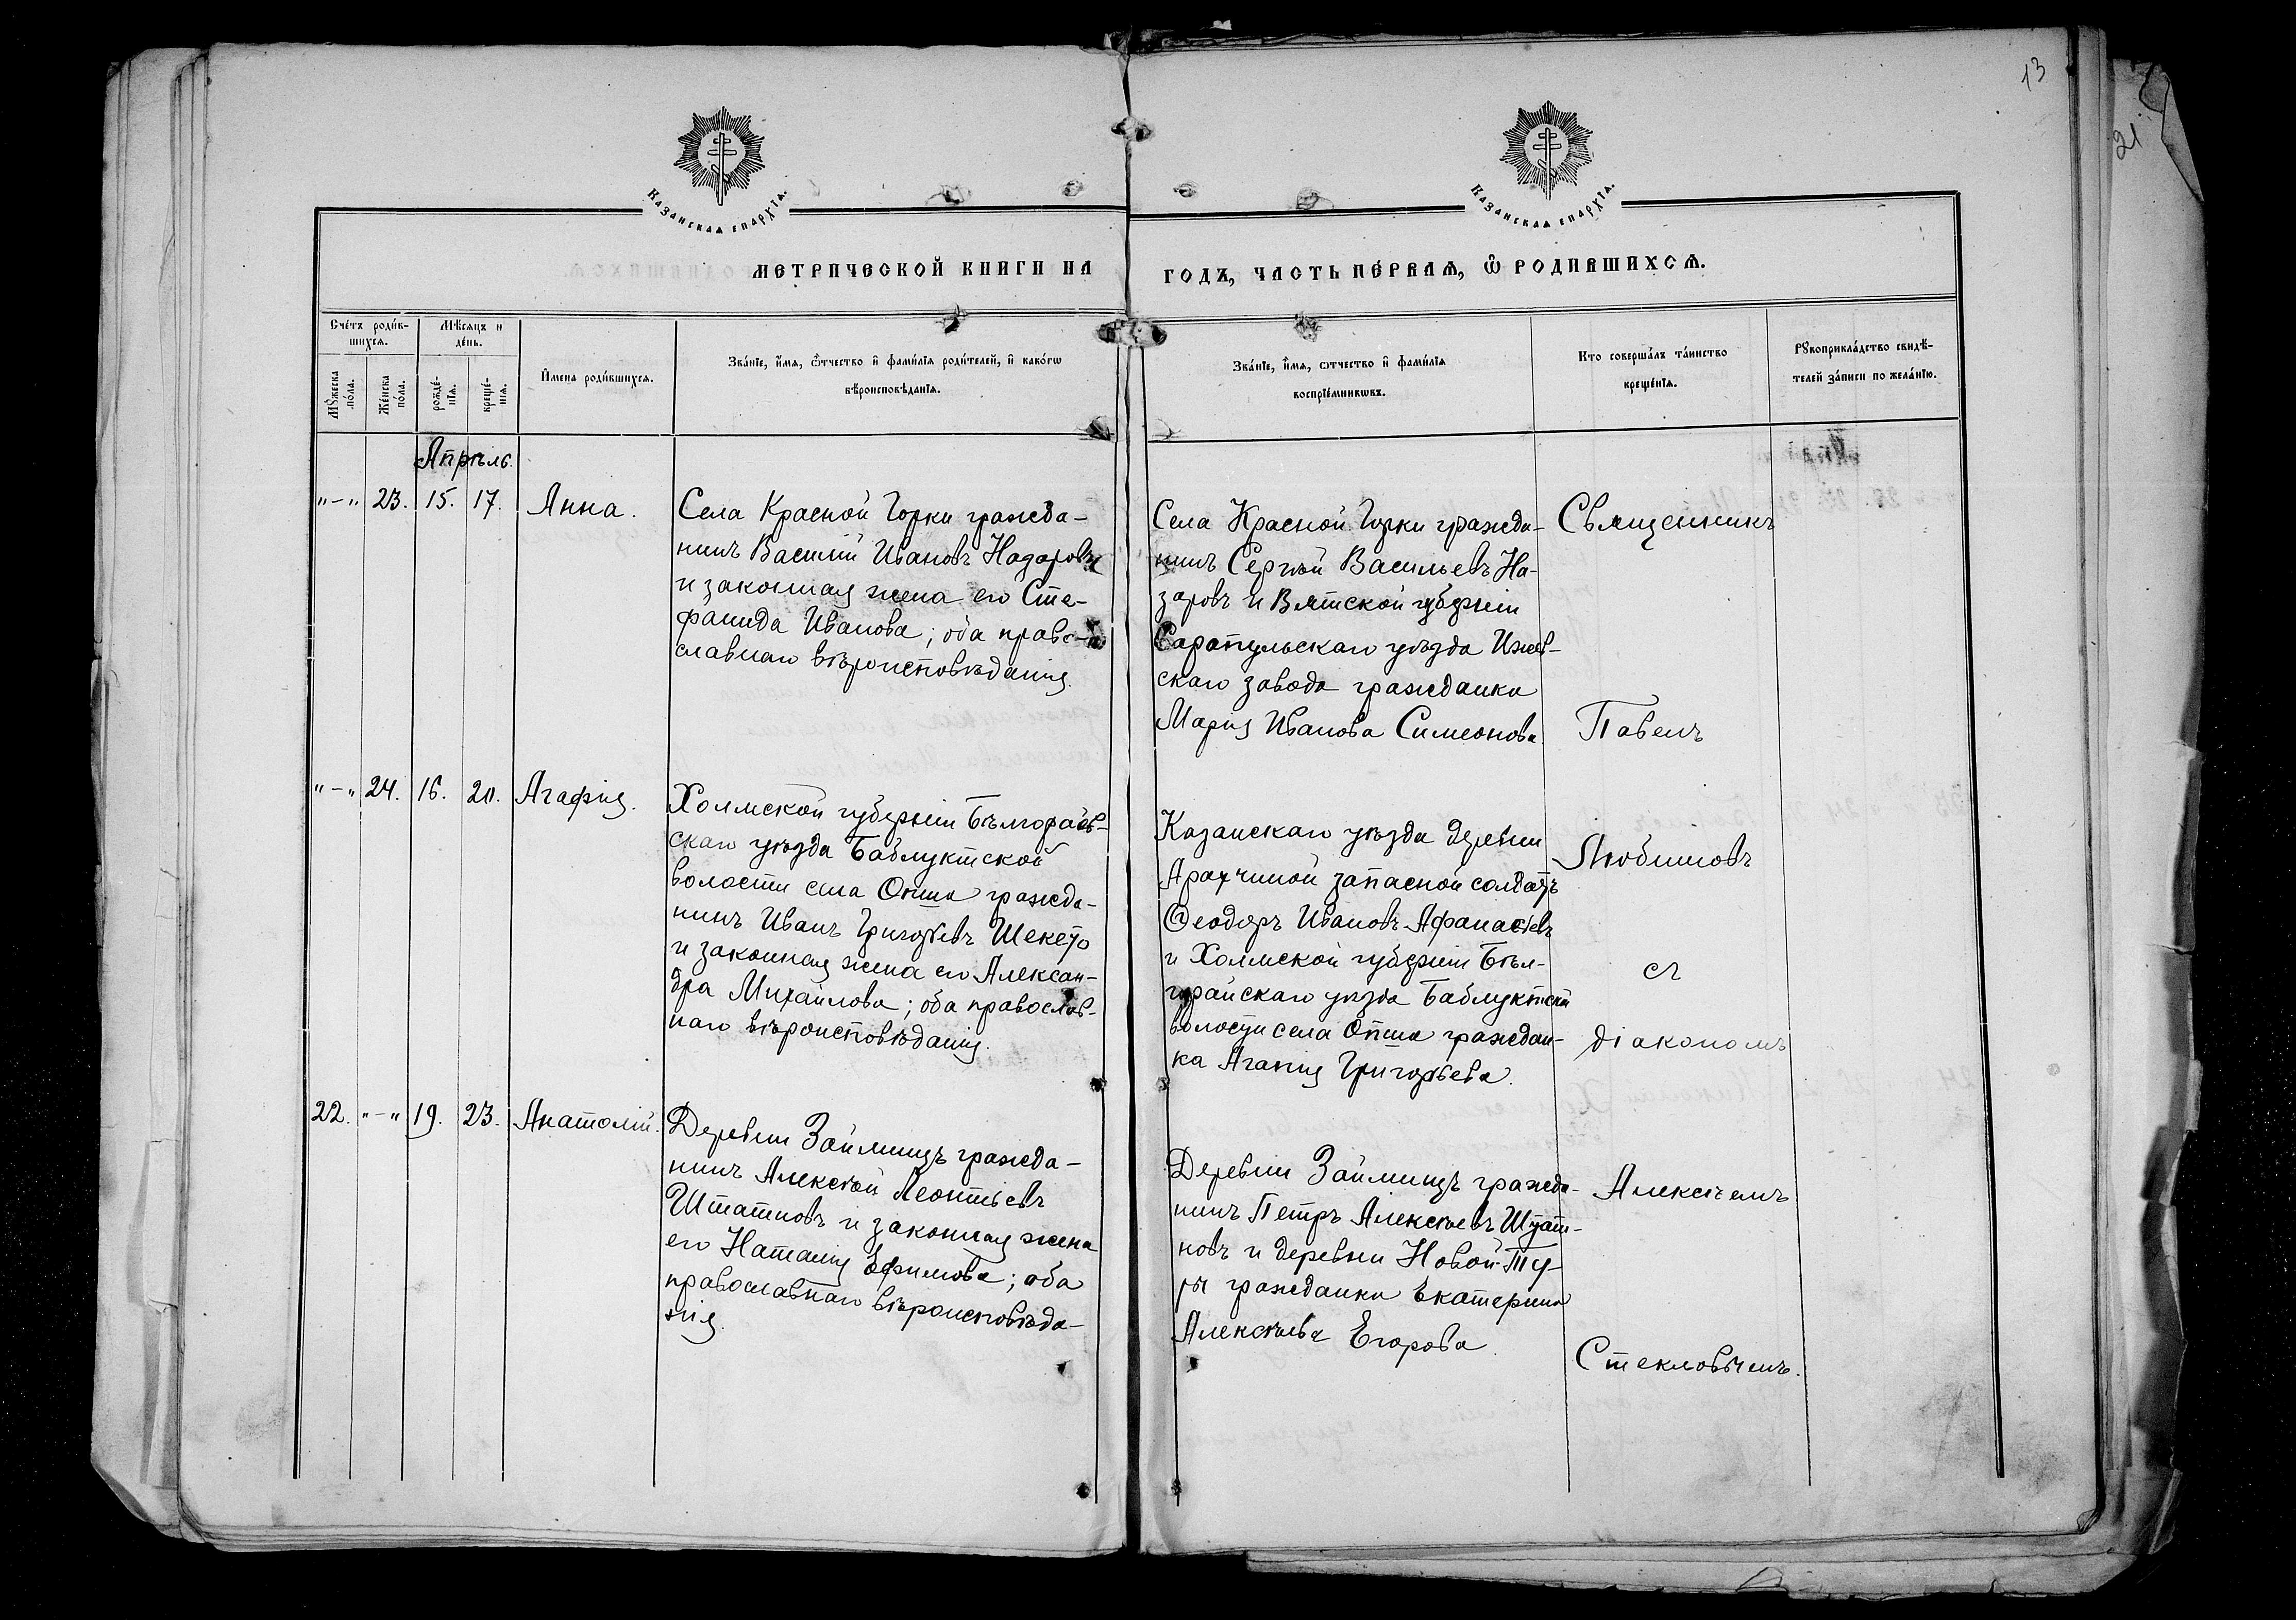 13
21.
Казанская епархїя.
Казанская епархїя.
Метрической книги на
годъ, часть первая, ѿ родившихся.
Счетъ родив-
шихся.
Мѣсяцъ и
день.
Мꙋжеска
пола.
Женска
пола.
рожде-
нїя.
креще-
нїя.
Имена родившихся.
Званїе, имя, ѿтчество и фамилїя родителей, и какогѡ
вѣроисповѣданїя.
Званїе, имя, ѡтчество и фамилїя
воспрїемникѡвъ.
Кто совершалъ таинство
крещенїя.
Рꙋкоприкладство свидѣ-
телей записи по желанїю.
Апрѣль.
"-" 23. 15. 17. Анна.
Села Красной Горки гражда-
нинъ Василій Ивановъ Назаровъ
и законная жена его Сте-
фанида Иванова; оба право-
славнаго вѣроисповѣданія.
Села Красной Горки гражда-
нинъ Сергѣй Васильевъ На-
заровъ и Вятской губерніи
Сарапульскаго уѣзда Ижев-
скаго завода гражданка
Марія Иванова Симеонова
"-" 24. 16. 20. Агафія.
Холмской губерніи Бѣлгорай-
скаго уѣзда Баблуктской
волости села гражда-
нинъ Иванъ Григорьевъ Шекето
и законная жена его Алексан-
дра Михайлова; оба православ-
наго вѣроисповѣданія.
Казанскаго уѣзда деревни
Аракчиной запасной солдатъ
Ѳеодоръ Ивановъ Афанасьевъ
и Холмской губерніи Бѣл-
горайскаго уѣзда Баблуктской
волости села граждан-
ка Агапія Григорьева.
22. "-" 19. 23. Анатолій.
Деревни Займищъ гражда-
нинъ Алексѣй Леонтьевъ
Штатновъ и законная жена
его Наталія Ефимова; оба
православнаго вѣроисповѣда-
нія.
Деревни Займищъ гражда-
нинъ Петръ Алексѣевъ Штат-
новъ и деревни Новой-Ту-
ры гражданка Екатерина
Алексѣева Егорова.
Священникъ
Павелъ
Любимовъ
съ
діакономъ
Алексѣемъ
Стекловымъ.